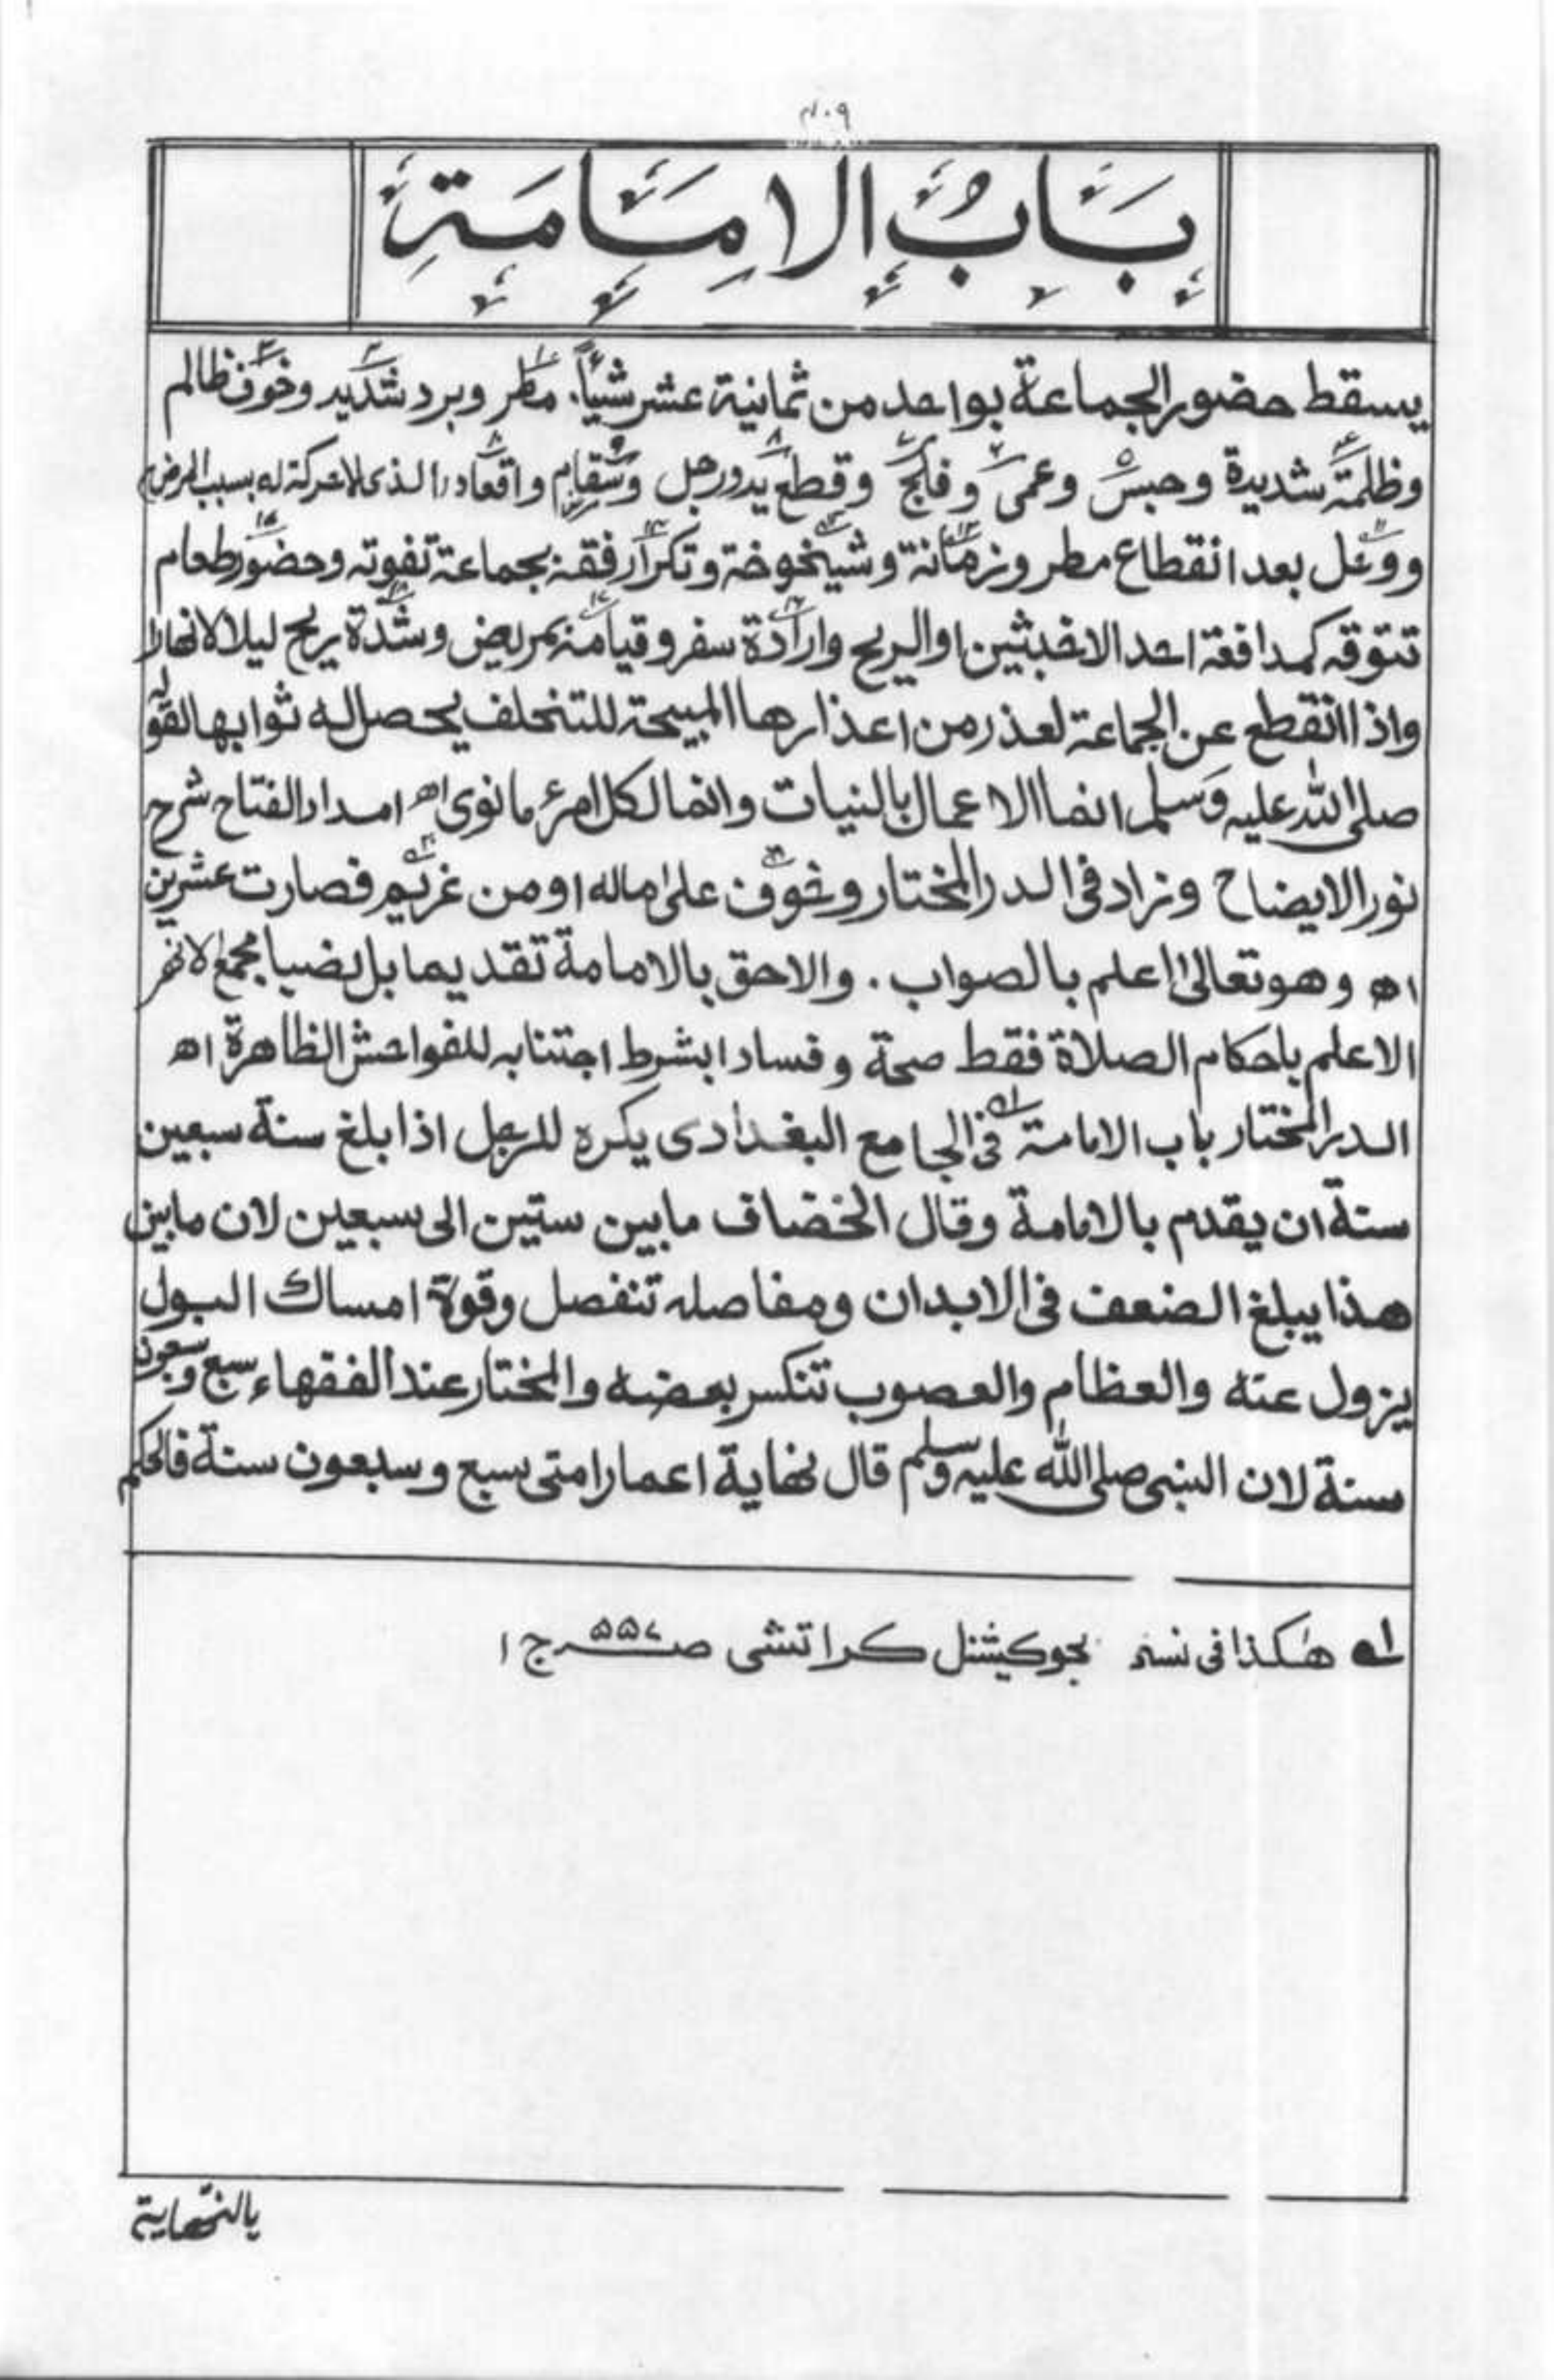 ۴۰۹
بَابُ الاِمَامَةِ
يسقط حضور الجماعة بواحد من ثمانية عشر شيئاً. مطر وبرد شديد وخوف ظالم
وظلمة شديدة وحبس وعمى وفلج وقطع يد ورجل وسقام واقعاد (الذى لاحركة له بسبب المرض)
ووحل بعد انقطاع مطر وزمانة وشيخوخة وتكرار فقه بجماعة تفوته وحضور طعام
تتوقه كمدافعة احد الاخبثين او الريح وارادة سفر وقيامه بمريض وشدة ريح ليلا لانهارا
واذا انقطع عن الجماعة لعذر من اعذارها المبيحة للتخلف يحصل له ثوابها لقوله
صلى الله عليه وسلم انما الاعمال بالنيات وانما لكل امرئ ما نوى اھ امداد الفتاح شرح
نور الايضاح وزاد فى الدر المختار وخوف على ماله او من غريم فصارت عشرين
اھ وهو تعالىٰ اعلم بالصواب . والاحق بالامامة تقديما بل نصبا مجمع الانهر
الاعلم باحكام الصلاة فقط صحة وفسادا بشرط اجتنابه للفواحش الظاهرة اھ
الدر المختار باب الامامة ؎۱ فى الجامع البغدادى يكره للرجل اذا بلغ سنة سبعين
سنة ان يقدم بالامامة وقال الخصاف مابين ستين الى سبعين لان مابين
هذا يبلغ الضعف فى الابدان ومفاصله تنفصل وقوة امساك البول
يزول عنه والعظام والعصوب تنكسر بعضه والمختار عند الفقهاء سبع وسبعون
سنة لان النبى صلى الله عليه وسلم قال نهاية اعمار امتى سبع وسبعون سنة فالحكم
؎۱ هٰكذا فى نسخه يجوكيشنل كراتشى صـ۵۵۷ـ ج ۱
بالنهاية